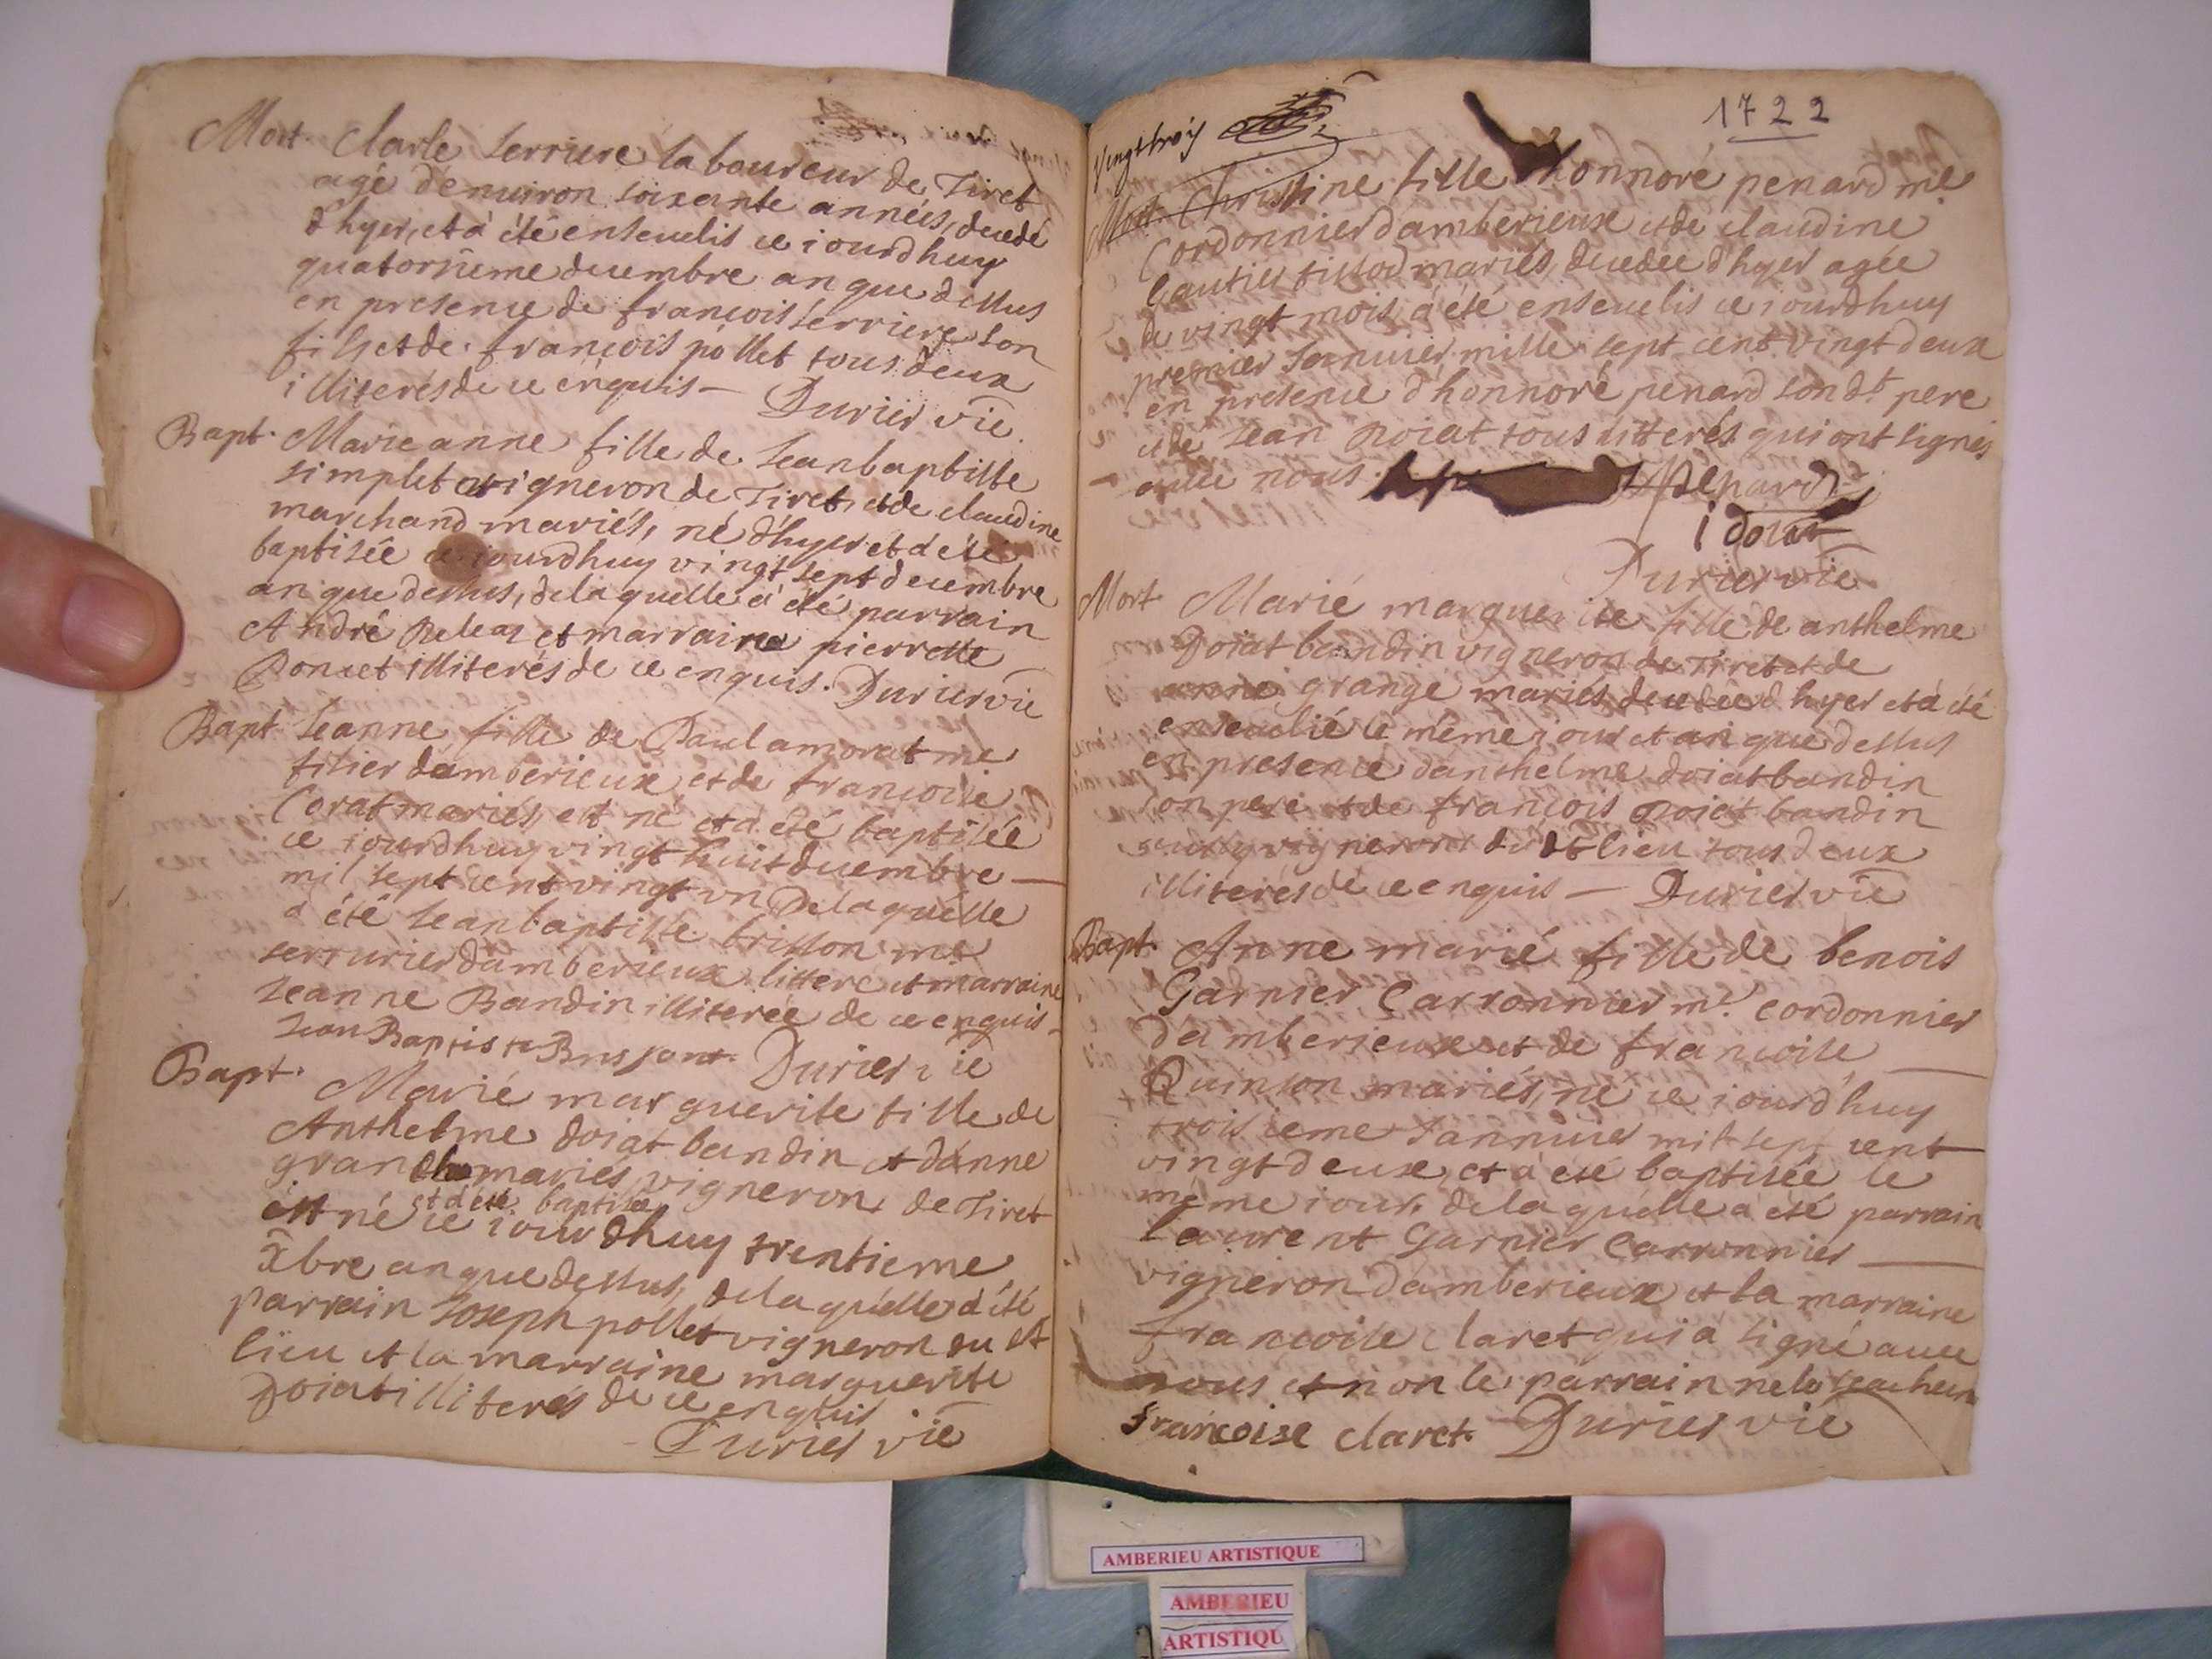 Mort Clarle Serriere laboureur de Tiret
agé denuiron soixante années, decedé
d'hyer, et a été enseuelis ce iourdhuy
quatorsieme decembre an que dessus
en presence de francois serriere son
fils et de francois pollet tous deux
illiterés de ce enquis — Durier vic
Bapt. Marie anne fille de Jean baptiste
simplet vigneron de Tiret, et de claudine
marchand mariés, né d'hyer et a été
baptisée ce iourdhuy vingt sept decembre
an que dessus, de laquelle a été parrain
André et marraine pierrette
Poncet illiterés de ce enquis. Durier vic
Bapt Jeanne fille de Paul amorat me
d'amberieux et de francoise
Corat mariés, est né et a été baptisée
ce iourdhuy vingt huit decembre —
mil sept cent vingt vn De laquelle
a été Jean baptiste brisson me
serrurier d'amberieux litteré et marraine
Jeanne Bandin illiterée de ce enquis —
Jean Baptiste Durier vic
Bapt. Marié marguerite fille de
Anthelme doiat bandin et d'anne
mariés, vigneron de Tiret
et a été baptisée
est né ce iourdhuy trentieme
xbre an que dessus, de laquelle a été
parrain Joseph pollet vigneron du dt
lieu et la marraine marguerite
Doiat illiterés de ce enquis
Durier vic
Vingt trois
1722
Mort. Christine fille honnoré penard me
Cordonnier d'amberieux et de claudine
Gautier mariés, decedée d'hyer agée
de vingt mois, a été enseuelis ce iourdhuy
premier Januier mille sept cent vingt deux
en presence d'honnoré penard son dt pere
et de Jean Doiat tous litterés qui ont signés
auec nous. Penard
i doiat
Durier vic
Mort Marié marguerite fille de anthelme
Doiat bandin vigneron de Tiret et de
anne grange mariés decedée d'hyer et a été
enseuelié le même iour et an que dessus
en presence d'anthelme doiat bandin
son pere et de francois Doiat bandin
vigneron du dt lieu tous deux
illiterés de ce enquis — Durier vic
Bapt. Anne marié fille de benois
Garnier Carronnier me. cordonnier
d'amberieux et de francoise —
Quinson mariés, né ce iourd'huy
troisieme Jannuier mil sept cent
vingt deux, et a été baptisée le
même iour. de laquelle a été parrain
laurent Garnier Carronnier —
vigneron d'amberieux et la marraine
francoise claret qui a signé auec
nous et non le parrain ne le
francoise claret. Durier vic
AMBERIEU ARTISTIQUE
AMBERIEU
ARTISTIQU